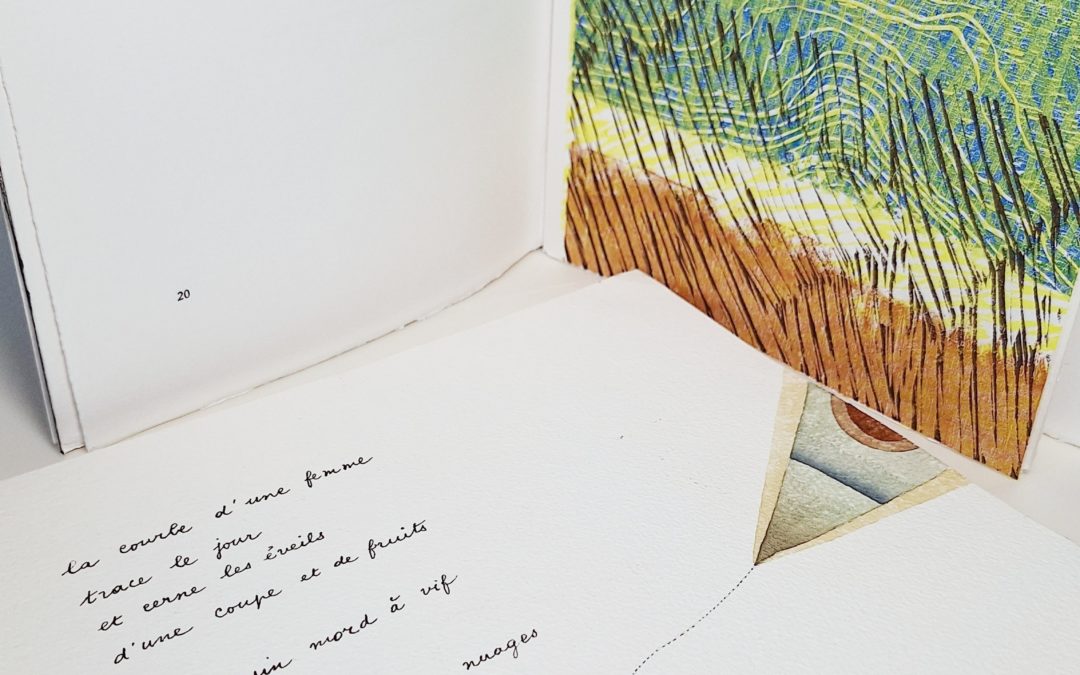 20
la courbe d'une femme
trace le jour
et cerne les éveils
d'une coupe et de fruits
mord à vif
nuages